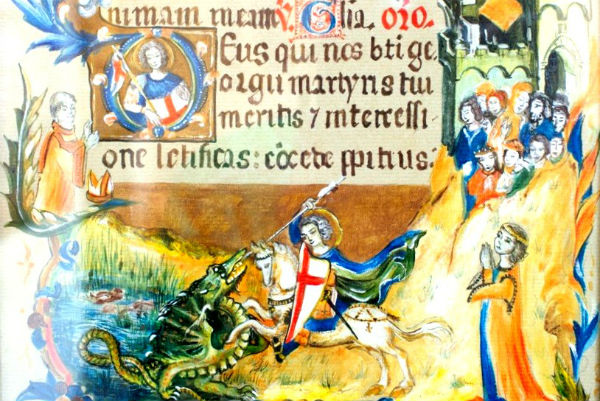 nimam meam ℣. Glia. oro.
DEus qui nos bti ge
orgii martyris tui
meritis ⁊ intercessi
one letificas: cōcede ppitius.